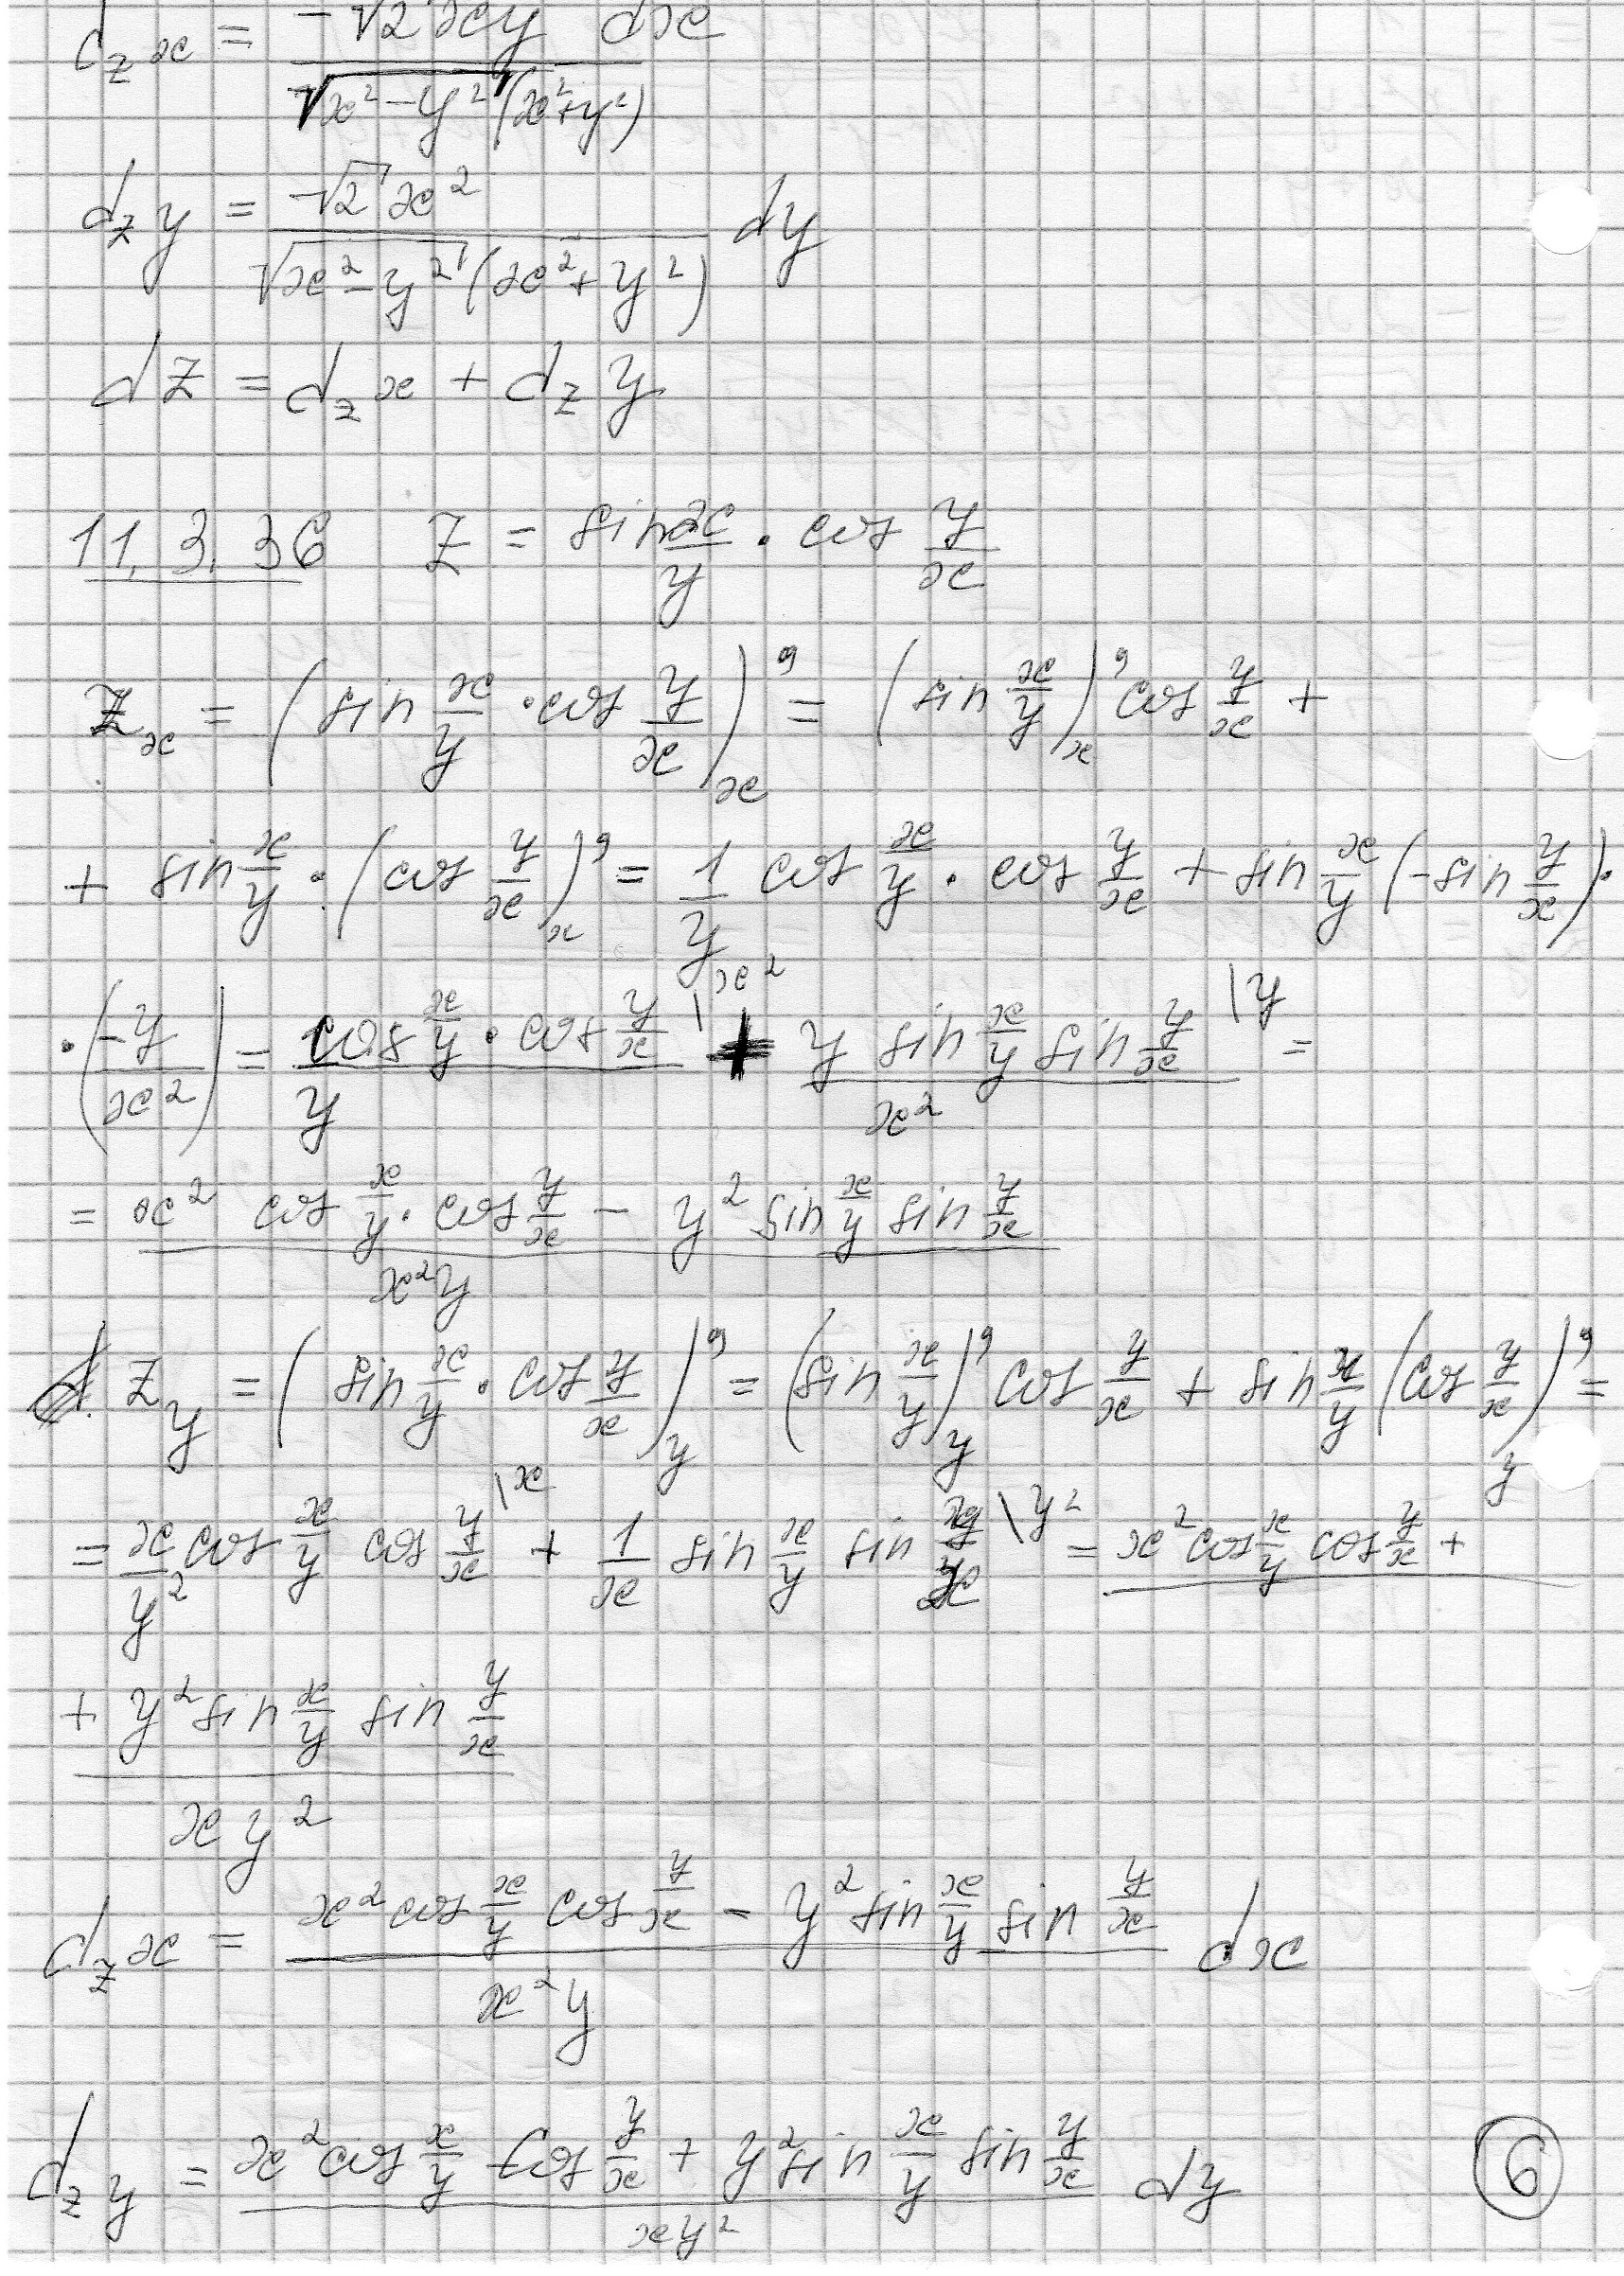 d_z x = \frac{-\sqrt{2} xy \, dx}{\sqrt{x^2 - y^2} (x^2 + y^2)}
d_z y = \frac{-\sqrt{2} x^2}{\sqrt{x^2 - y^2} (x^2 + y^2)} dy
dz = d_z x + d_z y
11.3.36 z = sin \frac{x}{y} · cos \frac{y}{x}
z_x = (sin \frac{x}{y} · cos \frac{y}{x})'_x = (sin \frac{x}{y})'_x cos \frac{y}{x} +
+ sin \frac{x}{y} · (cos \frac{y}{x})'_x = \frac{1}{y} cos \frac{x}{y} · cos \frac{y}{x} + sin \frac{x}{y} (-sin \frac{y}{x}) ·
· (\frac{-y}{x^2}) = \frac{cos \frac{x}{y} · cos \frac{y}{x}}{y}^{\x^2} + \frac{y sin \frac{x}{y} sin \frac{y}{x}}{x^2}^{\y} =
= \frac{x^2 cos \frac{x}{y} · cos \frac{y}{x} - y^2 sin \frac{x}{y} sin \frac{y}{x}}{x^2 y}
z_y = (sin \frac{x}{y} · cos \frac{y}{x})'_y = (sin \frac{x}{y})'_y cos \frac{y}{x} + sin \frac{x}{y} (cos \frac{y}{x})'_y =
= \frac{x}{y^2} cos \frac{x}{y} cos \frac{y}{x}^{\x} + \frac{1}{x} sin \frac{x}{y} sin \frac{y}{x}^{\y^2} = x^2 cos \frac{x}{y} cos \frac{y}{x} +
\frac{+ y^2 sin \frac{x}{y} sin \frac{y}{x}}{x y^2}
d_z x = \frac{x^2 cos \frac{x}{y} cos \frac{y}{x} - y^2 sin \frac{x}{y} sin \frac{y}{x}}{x^2 y} dx
d_z y = \frac{x^2 cos \frac{x}{y} cos \frac{y}{x} + y^2 sin \frac{x}{y} sin \frac{y}{x}}{x y^2} dy
6